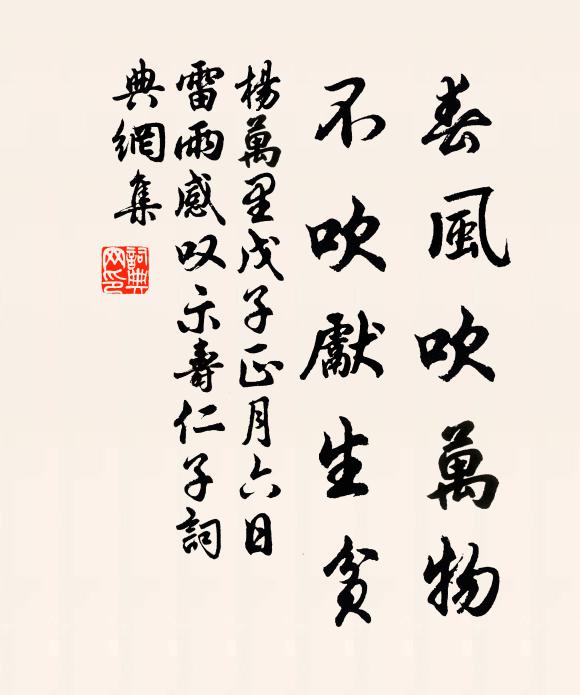 春風吹萬物
不吹獻生貧
楊萬里戊子正月六日
雷雨感叹示壽仁子詞
典網集
詞典網印